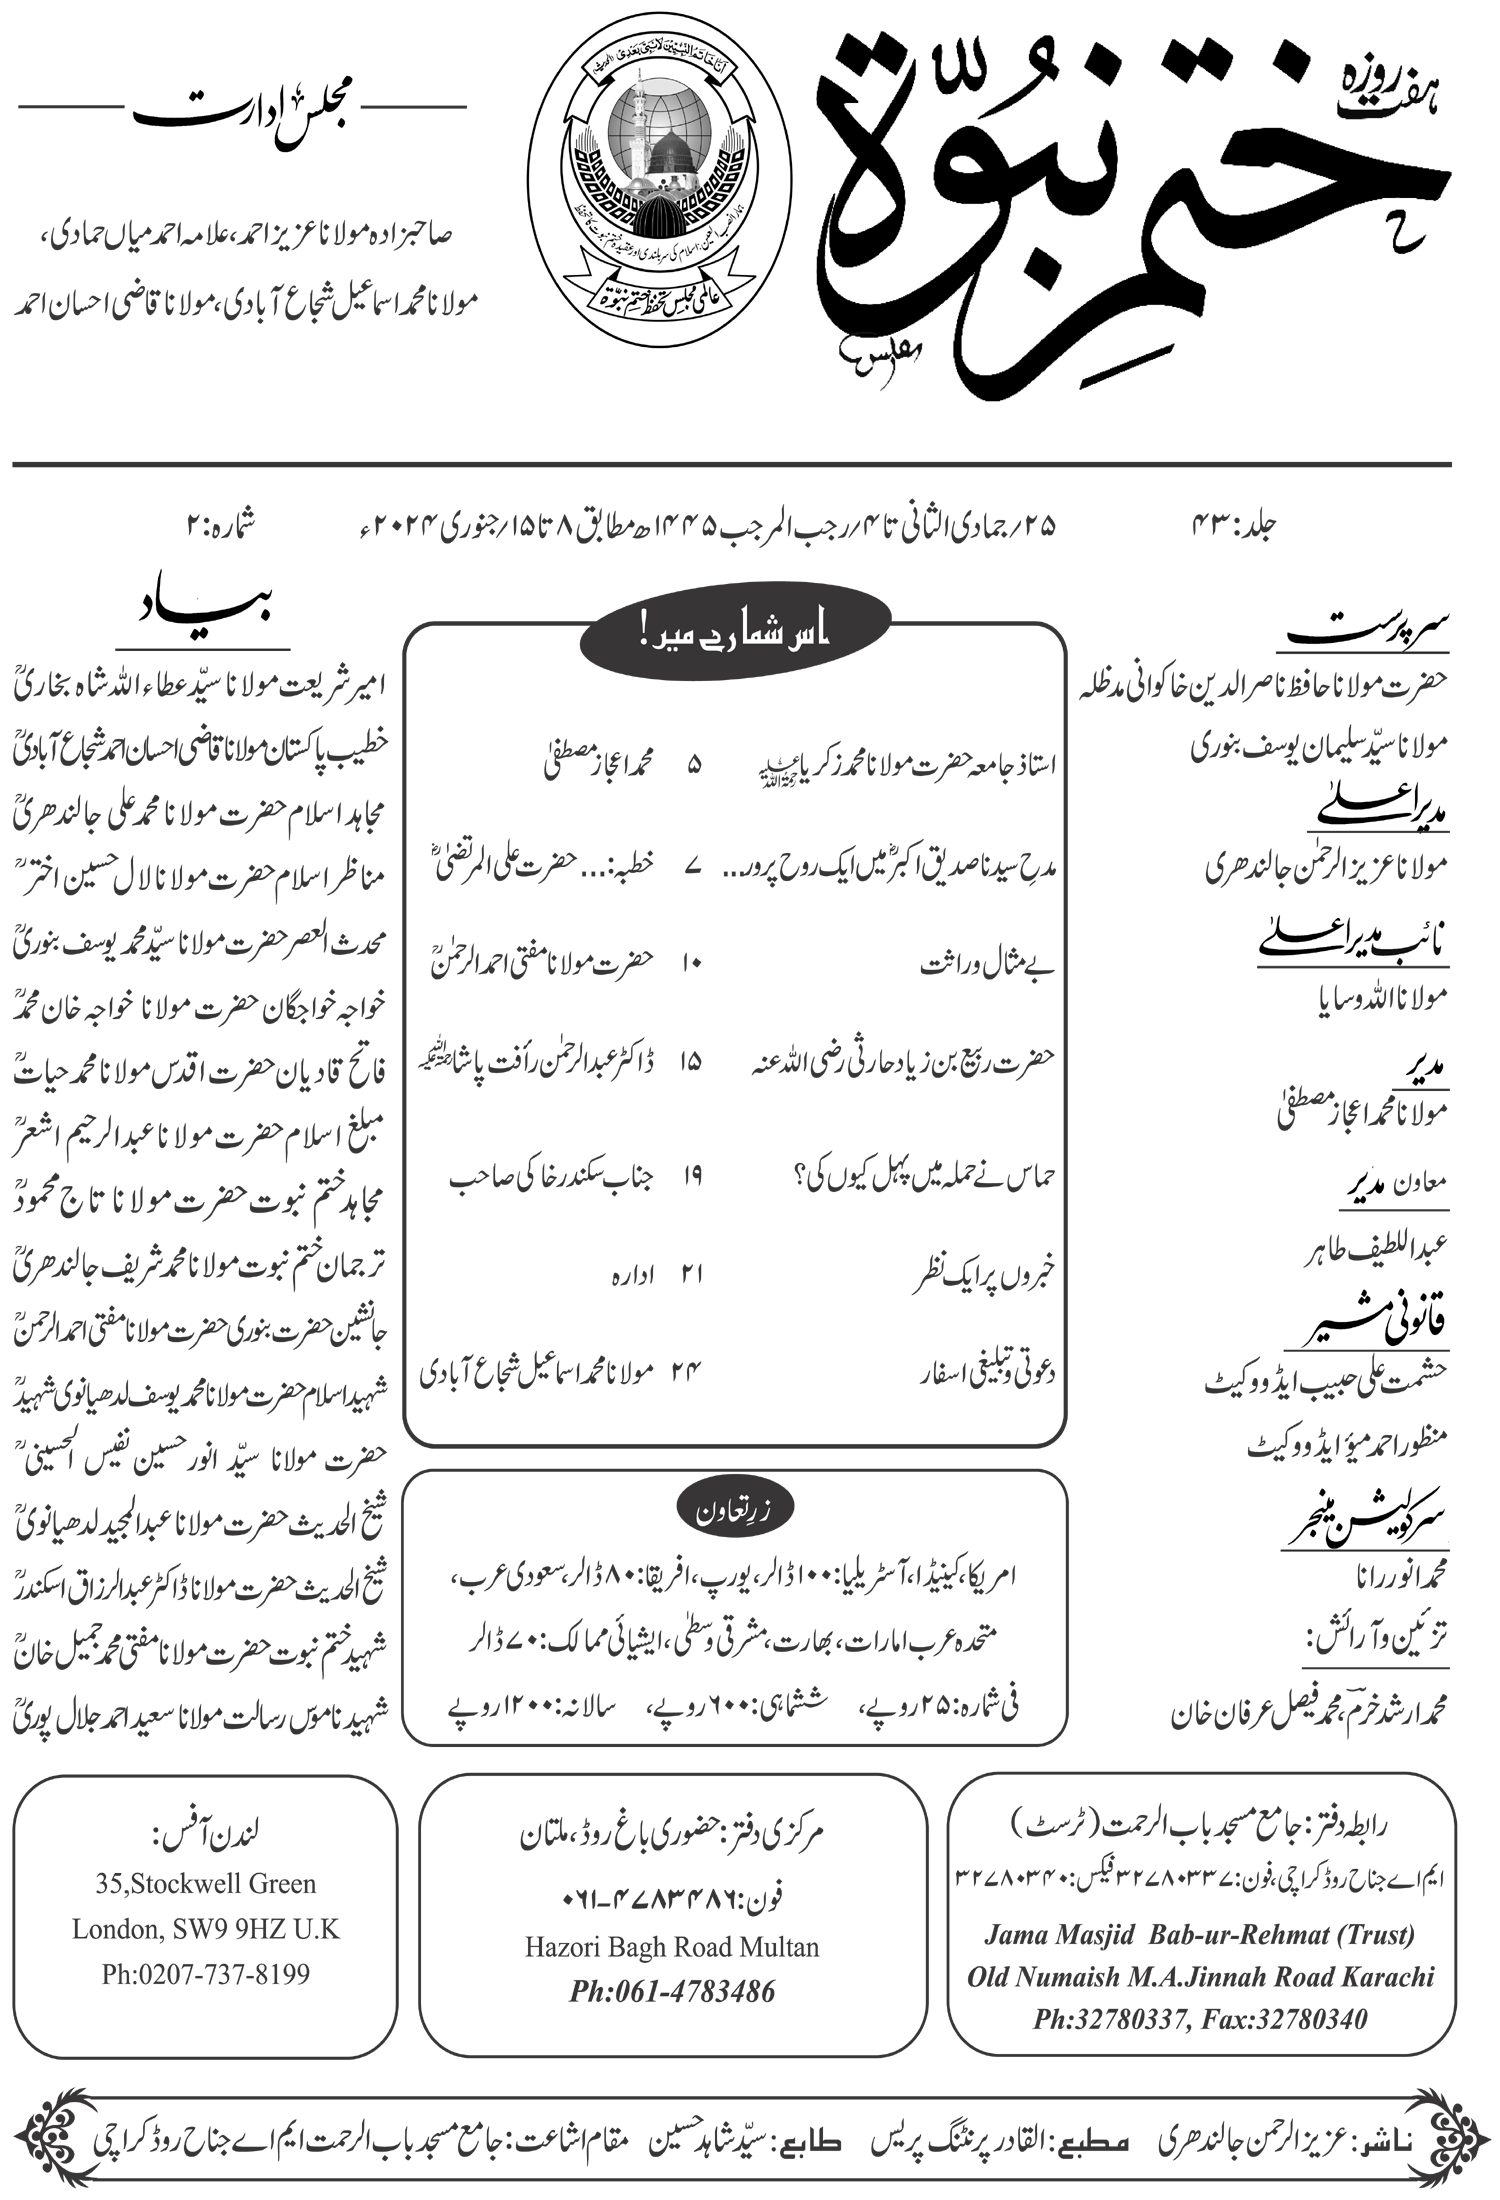 ہفت روزہ
ختم نبوّۃ
انا خاتم النبیین لا نبی بعدی (الحدیث)
ہمارا نصب العین: اسلام کی سربلندی اور عقیدہ ختم نبوت کا تحفظ
عالمی مجلس تحفظ ختم نبوّۃ
مجلس ادارت
صاحبزادہ مولانا عزیز احمد، علامہ احمد میاں حمادی،
مولانا محمد اسماعیل شجاع آبادی، مولانا قاضی احسان احمد
جلد: ۴۳ ۲۵؍جمادی الثانی تا ۴؍رجب المرجب ۱۴۴۵ھ مطابق ۸ تا ۱۵؍جنوری ۲۰۲۴ء شمارہ: ۲
سرپرست
حضرت مولانا حافظ ناصر الدین خاکوانی مدظلہ
مولانا سیّد سلیمان یوسف بنوری
مدیر اعلیٰ
مولانا عزیز الرحمٰن جالندھری
نائب مدیر اعلیٰ
مولانا اللہ وسایا
مدیر
مولانا محمد اعجاز مصطفیٰ
معاون مدیر
عبداللطیف طاہر
قانونی مشیر
حشمت علی حبیب ایڈووکیٹ
منظور احمد میؤ ایڈووکیٹ
سرکولیشن منیجر
محمد انور رانا
تزئین و آرائش:
محمد ارشد خرم، محمد فیصل عرفان خان
اس شمارے میں!
استاذ جامعہ حضرت مولانا محمد زکریا رحمۃ اللہ علیہ ۵ محمد اعجاز مصطفیٰ
مدحِ سیدنا صدیق اکبرؓ میں ایک روح پرور... ۷ خطبہ:... حضرت علی المرتضیٰؓ
بے مثال وراثت ۱۰ حضرت مولانا مفتی احمد الرحمٰنؒ
حضرت ربیع بن زیاد حارثی رضی اللہ عنہ ۱۵ ڈاکٹر عبدالرحمٰن رأفت پاشا رحمۃ اللہ علیہ
حماس نے حملہ میں پہل کیوں کی؟ ۱۹ جناب سکندر خاکی صاحب
خبروں پر ایک نظر ۲۱ ادارہ
دعوتی و تبلیغی اسفار ۲۴ مولانا محمد اسماعیل شجاع آبادی
زرِ تعاون
امریکا، کینیڈا، آسٹریلیا: ۱۰۰ ڈالر، یورپ، افریقا: ۸۰ ڈالر، سعودی عرب،
متحدہ عرب امارات، بھارت، مشرقی وسطیٰ، ایشیائی ممالک: ۷۰ ڈالر
فی شمارہ: ۲۵ روپے، ششماہی: ۶۰۰ روپے، سالانہ: ۱۲۰۰ روپے
بیاد
امیر شریعت مولانا سیّد عطاء اللہ شاہ بخاریؒ
خطیب پاکستان مولانا قاضی احسان احمد شجاع آبادیؒ
مجاہد اسلام حضرت مولانا محمد علی جالندھریؒ
مناظر اسلام حضرت مولانا لال حسین اخترؒ
محدث العصر حضرت مولانا سیّد محمد یوسف بنوریؒ
خواجہ خواجگان حضرت مولانا خواجہ خان محمدؒ
فاتح قادیان حضرت اقدس مولانا محمد حیاتؒ
مبلغ اسلام حضرت مولانا عبدالرحیم اشعرؒ
مجاہد ختم نبوت حضرت مولانا تاج محمودؒ
ترجمان ختم نبوت مولانا محمد شریف جالندھریؒ
جانشین حضرت بنوری حضرت مولانا مفتی احمد الرحمنؒ
شہید اسلام حضرت مولانا محمد یوسف لدھیانوی شہیدؒ
حضرت مولانا سیّد انور حسین نفیس الحسینیؒ
شیخ الحدیث حضرت مولانا عبدالمجید لدھیانویؒ
شیخ الحدیث حضرت مولانا ڈاکٹر عبدالرزاق اسکندرؒ
شہید ختم نبوت حضرت مولانا مفتی محمد جمیل خانؒ
شہید ناموس رسالت مولانا سعید احمد جلال پوریؒ
رابطہ دفتر: جامع مسجد باب الرحمت (ٹرسٹ)
ایم اے جناح روڈ کراچی، فون: ۳۲۷۸۰۳۳۷ فیکس: ۳۲۷۸۰۳۴۰
Jama Masjid Bab-ur-Rehmat (Trust)
Old Numaish M.A.Jinnah Road Karachi
Ph:32780337, Fax:32780340
مرکزی دفتر: حضوری باغ روڈ، ملتان
فون: ۰۶۱-۴۷۸۳۴۸۶
Hazori Bagh Road Multan
Ph:061-4783486
لندن آفس:
35,Stockwell Green
London, SW9 9HZ U.K
Ph:0207-737-8199
ناشر: عزیز الرحمن جالندھری مطبع: القادر پرنٹنگ پریس طابع: سیّد شاہد حسین مقام اشاعت: جامع مسجد باب الرحمت ایم اے جناح روڈ کراچی